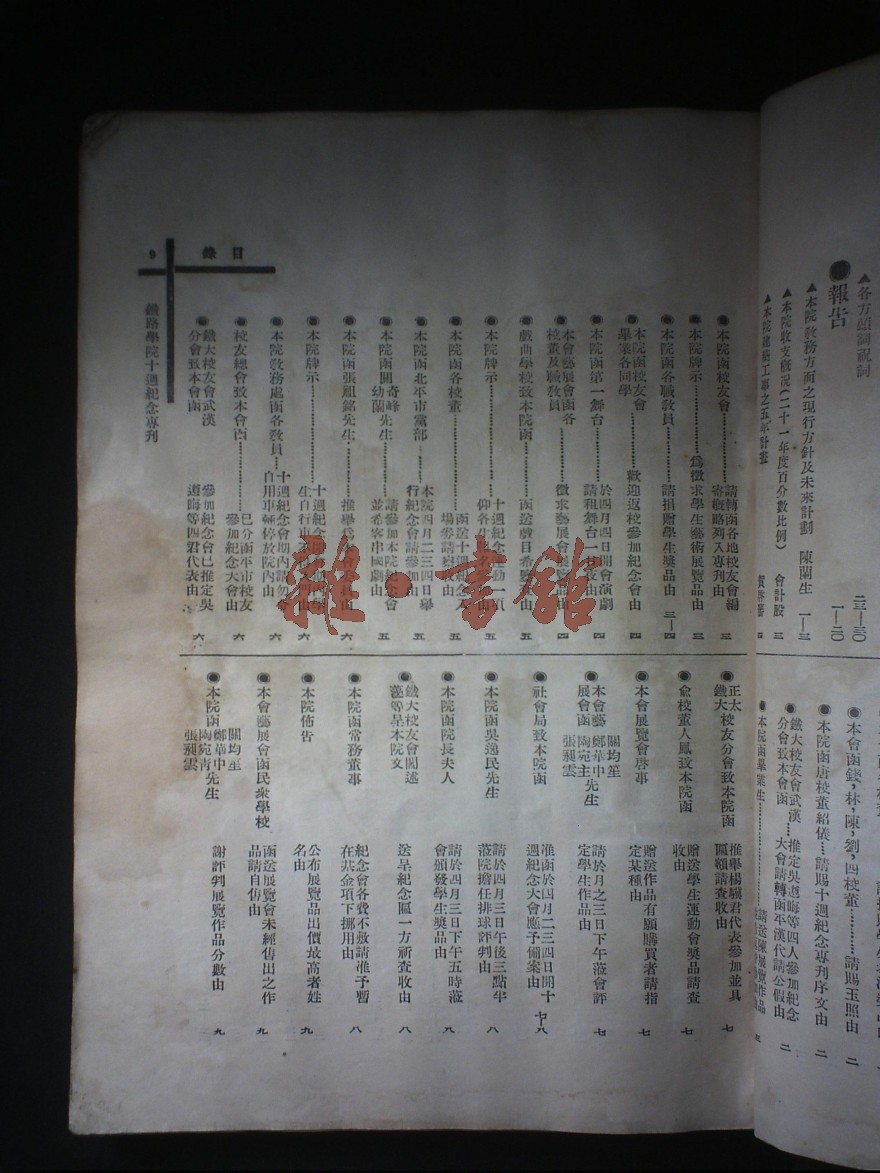 ▲各方頌詞祝詞 二三—三〇
●報告 一—二〇
▲本院教務方面之現行方針及未來計劃 陳蘭生 一—三
▲本院收支概況(二十一年度百分數比例) 會計股 三
▲本院建築工事之五年計畫 四
●本會函錢，林，陳，劉，四校董………請賜玉照由 二
●本院函唐校董紹儀……請賜十週紀念專刊序文由 二
●鐵大校友會武漢分會致本會函…推定吳道晦等四人參加紀念大會請轉函平漢代請公假由 二
●本院函畢業生………請送陳展覽作品
目錄
9
鐵路學院十週紀念專刊
●本院函校友會………請轉函各地校友會編寄概略列入專刊由 三
●本院牌示………為徵求學生藝術展覽品由 三
●本院函各職教員………請捐贈學生獎品由 三—四
●本院函校友會畢業各同學………歡迎返校參加紀念會由 四
●本院函第一舞台………於四月四日開會演劇請租舞台一日夜由 四
●本會藝展會函各校董及職教員………徵求藝展會展品由 四
●戲曲學校致本院函………函送戲目希察收由 五
●本院牌示………十週紀念運動一項仰各生報名由 五
●本院函各校董………函送十週紀念入場券請察收由 五
●本院函北平市黨部………本院四月二三四日舉行紀念會請參加由 五
●本院函關奇峰幼蘭先生………請參加本院紀念會並希客串國劇由 五
●本院函張祖銘先生………推舉為 由 六
●本院牌示………十週紀念 生自行車 由 六
●本院教務處函各教員………十週紀念會期內請勿令自用車輛停放院內由 六
●校友總會致本會函………已分函平市校友參加紀念大會由 六
●鐵大校友會武漢分會致本會函 參加紀念會已推定吳道晦等四君代表由 六
●正太鐵大校友分會致本院函 推舉楊驥君代表參加並具匾額請查收由 七
●俞校董人鳳致本院函 贈送學生運動會獎品請查收由 七
●本會展覽會啓事 贈送作品有願購買者請指定某種由 七
●本會藝展會函關均笙鄭華中陶宛主張昶雲先生 請於月之三日下午蒞會評定學生作品由 七
●社會局致本院函 准函於四月二三四日開十週紀念大會應予備案由 七—八
●本院函吳逸民先生 請於四月三日午後三點半蒞院擔任排球評判由 八
●本院函院長夫人 請於四月三日下午五時蒞會頒發學生獎品由 八
●鐵大校友會關述 等呈本院文 送呈紀念匾一方祈查收由 八
●本院函常務董事 紀念會各費不敷請准予暫在共金項下挪用由 八
●本院佈告 公布展覽品出價最高者姓名由 九
●本會藝展會函民衆學校 函送展覽會未經售出之作品請自售由 九
●本院函關均笙鄭華中陶宛青張昶雲先生 謝評判展覽作品分數由 九
雜·書館